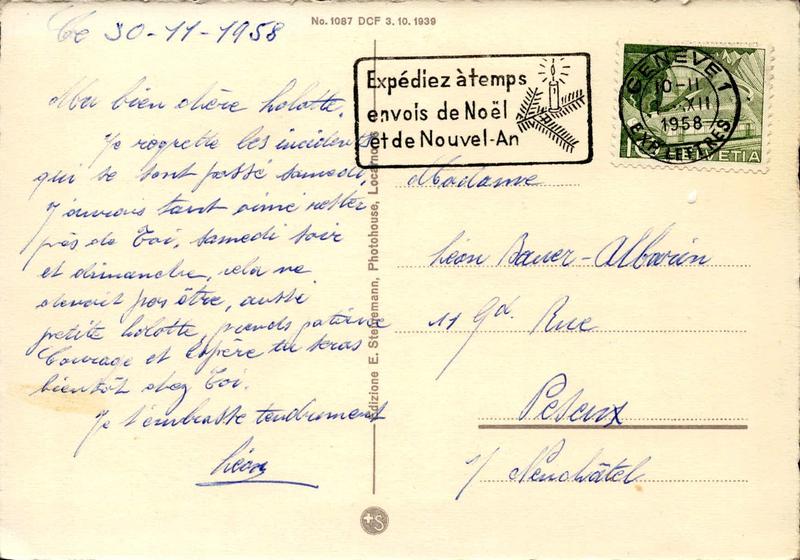 No. 1087 DCF 3. 10. 1939
Ce 30-11-1958
Ma bien chère Lolotte.
Je regrette les incidents
qui se sont passé samedi,
J'aurais tant aimé rester
près de Toi, samedi soir
et dimanche, cela ne
devait pas être, aussi
petite Lolotte, prends patience
Courage et Espère tu seras
bientôt chez Toi.
Je t'embrasse tendrement
Léon
Edizione E. Steinemann, Photohouse, Locarno
+S
Expédiez à temps
envois de Noël
et de Nouvel-An
GENÈVE 1
10-11
XII
1958
EXP. LETTRES
HELVETIA
Madame
Léon Bauer-Albarin
11 Gd. Rue
Peseux
s/ Neuchâtel